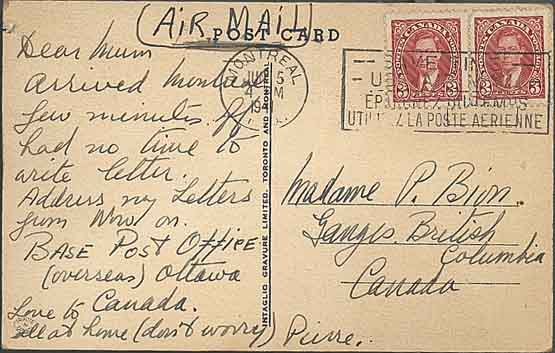 (AIR MAIL)
POST CARD
Dear Mum
Arrived Montreal
few minutes. If
had no time to
write letter.
Address my Letters
from Now on.
BASE POST OFFICE
(overseas) Ottawa
Love to Canada.
all at home (don't worry) Pierre.
INTAGLIO GRAVURE LIMITED, TORONTO AND MONTREAL
MONTREAL
4 PM
CANADA
3 3
CANADA
3 3
UTILISEZ LA POSTE AERIENNE
Madame P. Bion.
Ganges. British
Columbia
Canada